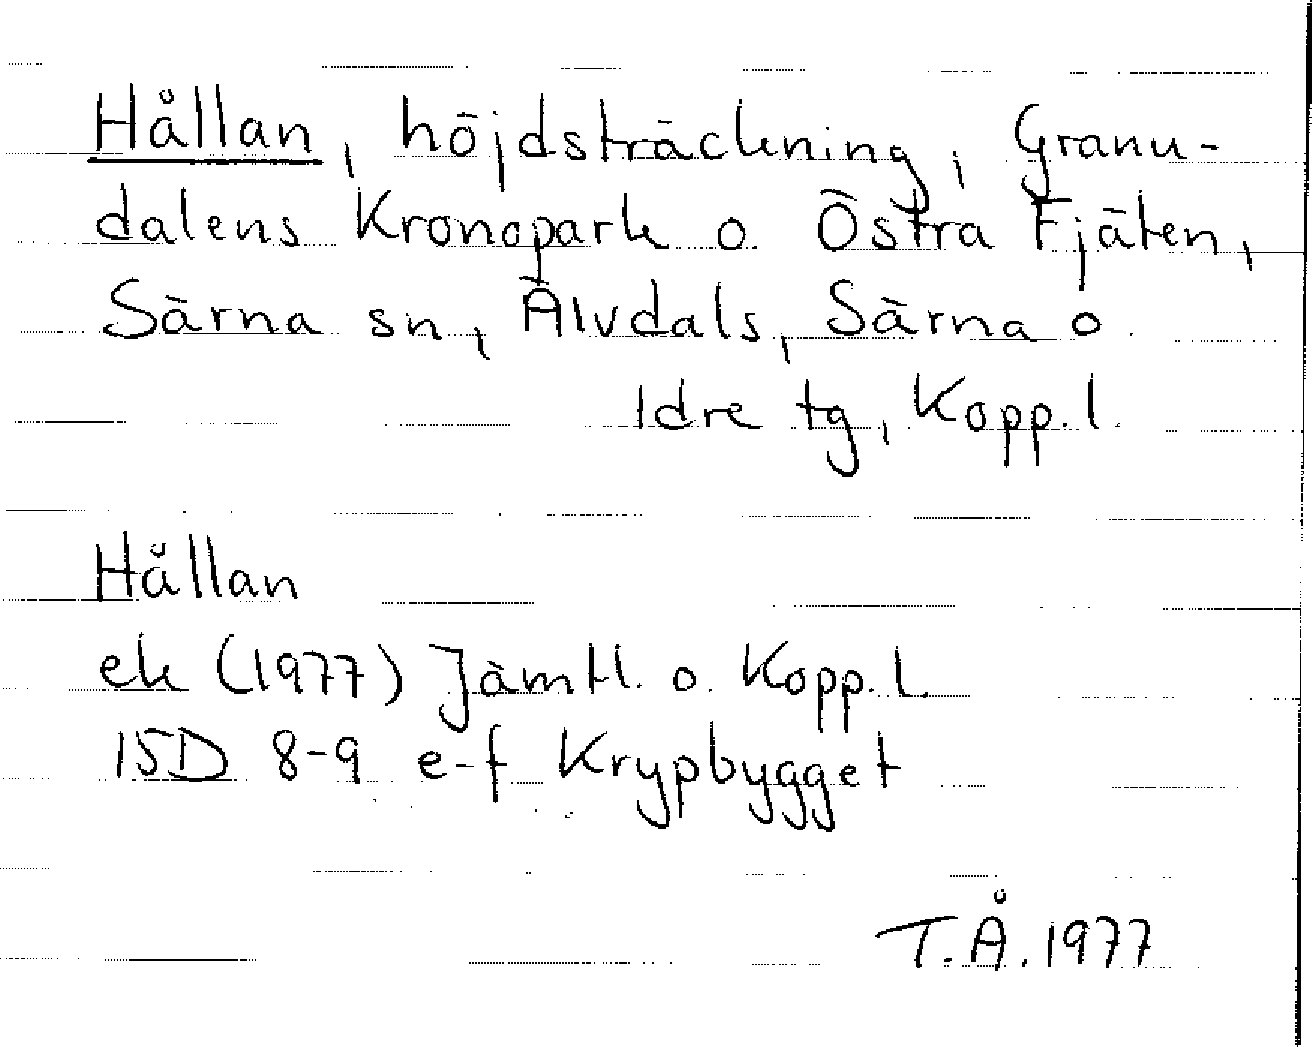 Hållan, höjdsträckning, Granu-
dalens Kronopark o. Östra Fjäten,
Särna sn, Älvdals, Särna o.
Idre tg, Kopp. l.
Hållan
ek (1977) Jämtl. o. Kopp. l.
15D 8-9 e-f Krypbygget
T.Å. 1977